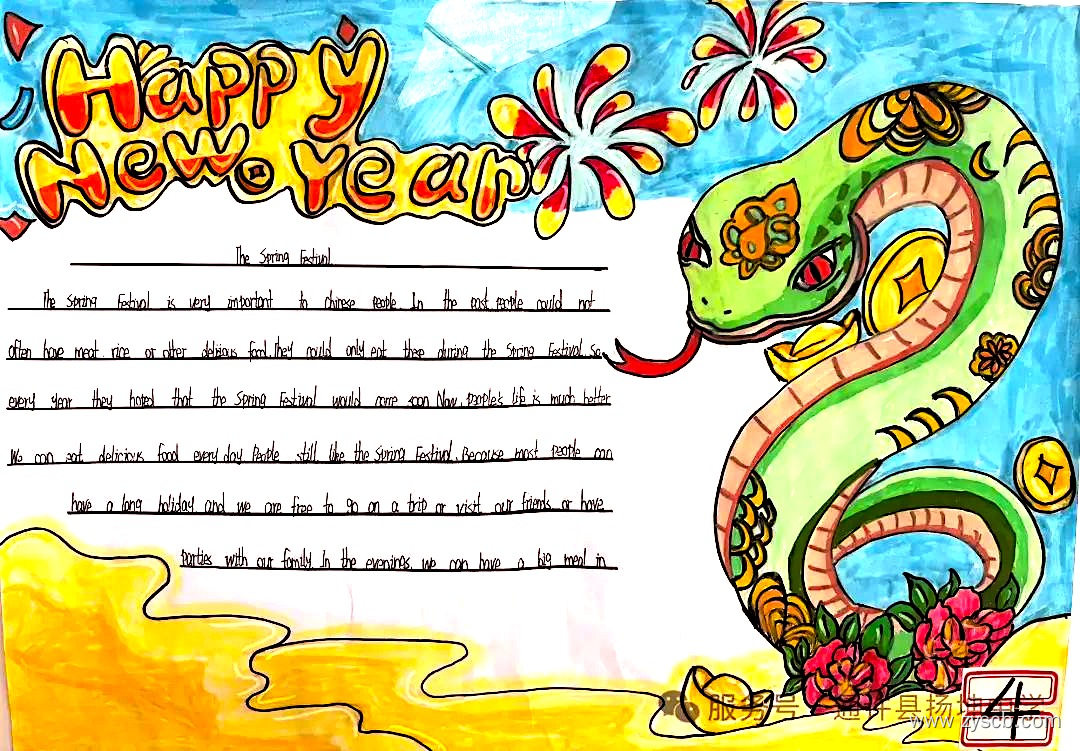 Happy
New Year
The Spring Festival
The Spring Festival is very important to chinese people. In the past, people could not
often have meat rice or other delicious food. They could only eat these during the Spring Festival. So,
every year they hoped that the Spring Festival would come soon Now, people's life is much better
We can eat delicious food every day People still like the Spring Festival. Because most people can
have a long holiday and we are free to go on a trip or visit our friends or have
parties with our family In the evenings, we can have a big meal in
服务号
www.zyscb.com
4